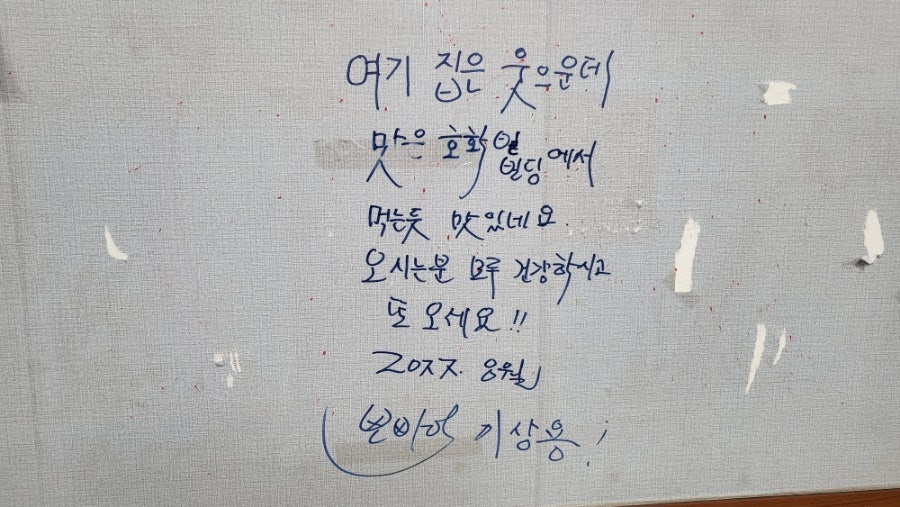 여기 집은 웃으운데
맛은 호화 빌딩에서
먹는듯 맛있네요
오시는분 모두 건강하시고
또 오세요!!